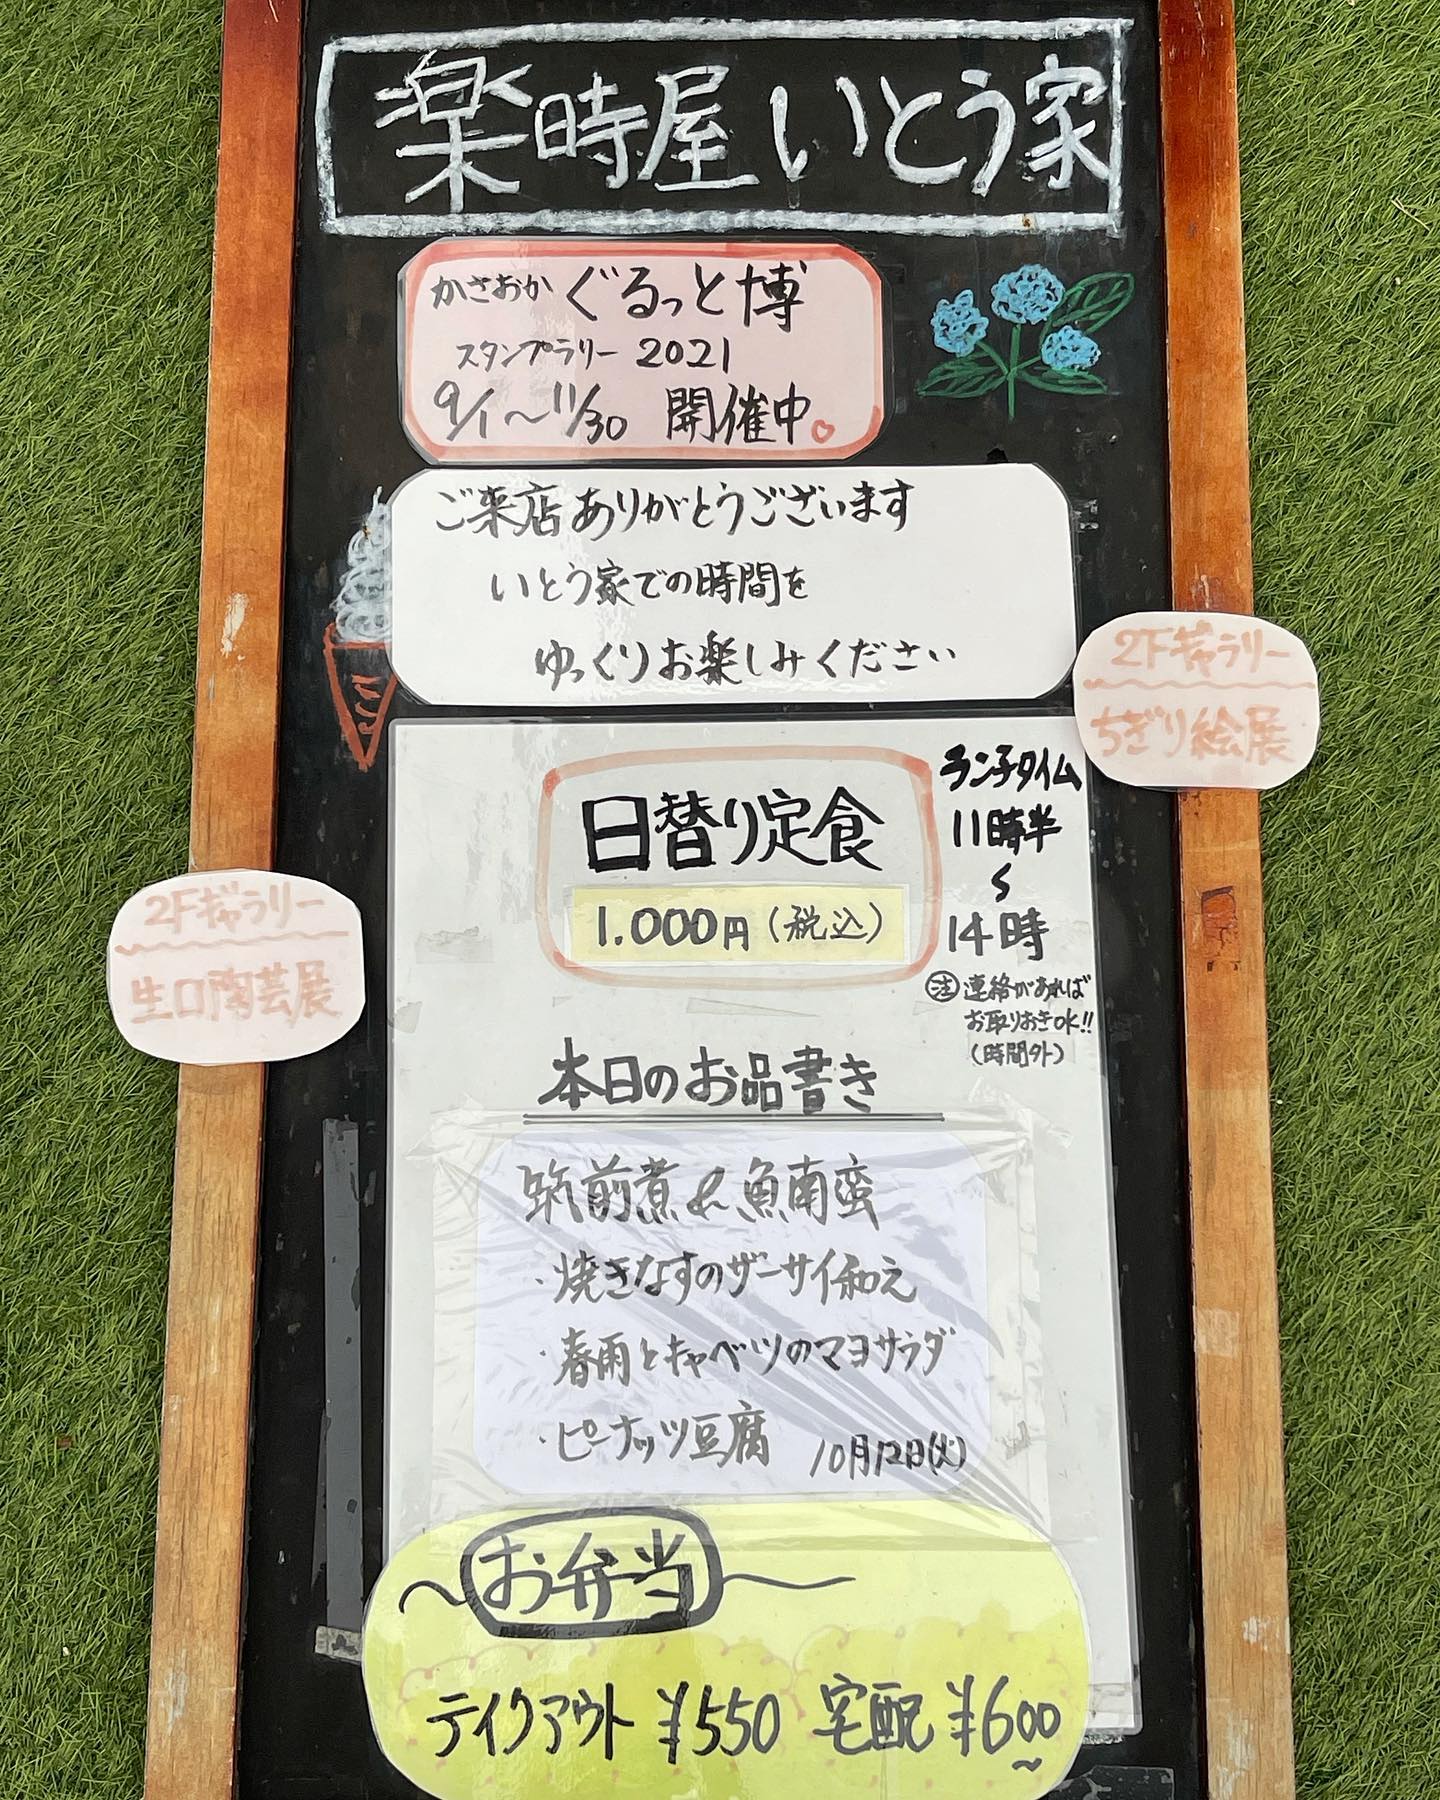 楽時屋 いとう家
かさおか ぐるっと博
スタンプラリー 2021
9/1〜11/30 開催中。
ご来店ありがとうございます
いとう家での時間を
ゆっくりお楽しみください
2Fギャラリー
ちぎり絵展
日替り定食
1.000円(税込)
ランチタイム
11時半
〜
14時
注 連絡があれば
お取りおきOK!!
(時間外)
2Fギャラリー
生口陶芸展
本日のお品書き
筑前煮&魚南蛮
・焼きなすのザーサイ和え
・春雨とキャベツのマヨサラダ
・ピーナッツ豆腐 10月12日(火)
〜お弁当〜
テイクアウト ¥550 宅配 ¥600〜